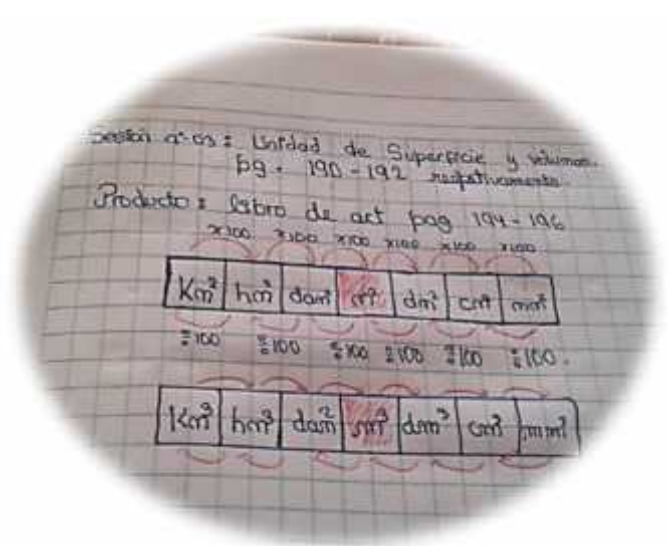 Sesión nº 03: Unidad de Superficie y volumen.
pg. 190 - 192 respetivamente.
Producto: libro de act pag 194 - 196
x100 x100 x100 x100 x100 x100
Km² hm² dam² m² dm² cm² mm²
÷100 ÷100 ÷100 ÷100 ÷100 ÷100.
Km³ hm³ dam² m³ dm³ cm³ mm³